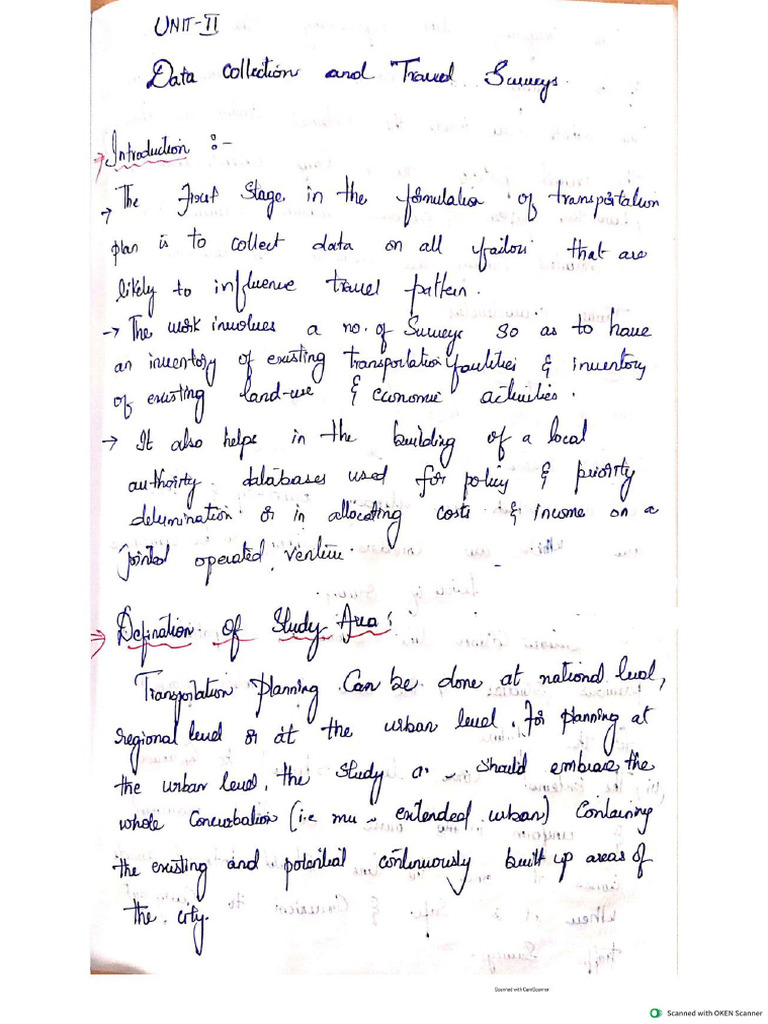 UNIT-II
Data Collection and Travel Surveys.
Introduction :-
→ The first stage in the formulation of transportation
plan is to collect data on all factors that are
likely to influence travel pattern.
→ The work involves a no. of Surveys so as to have
an inventory of existing transportation facilities & inventory
of existing land-use & economic activities.
→ It also helps in the building of a local
authority databases used for policy & priority
determination or in allocating costs & income on a
jointed operated venture.
Defination of Study Area:
Transportation Planning Can be done at national level,
regional level or at the urban level. for planning at
the urban level, the study should embrace the
whole Conurbation (i.e extended urban) Containing
the existing and potential continuously built up areas of
the city.
Scanned with CamScanner
Scanned with OKEN Scanner